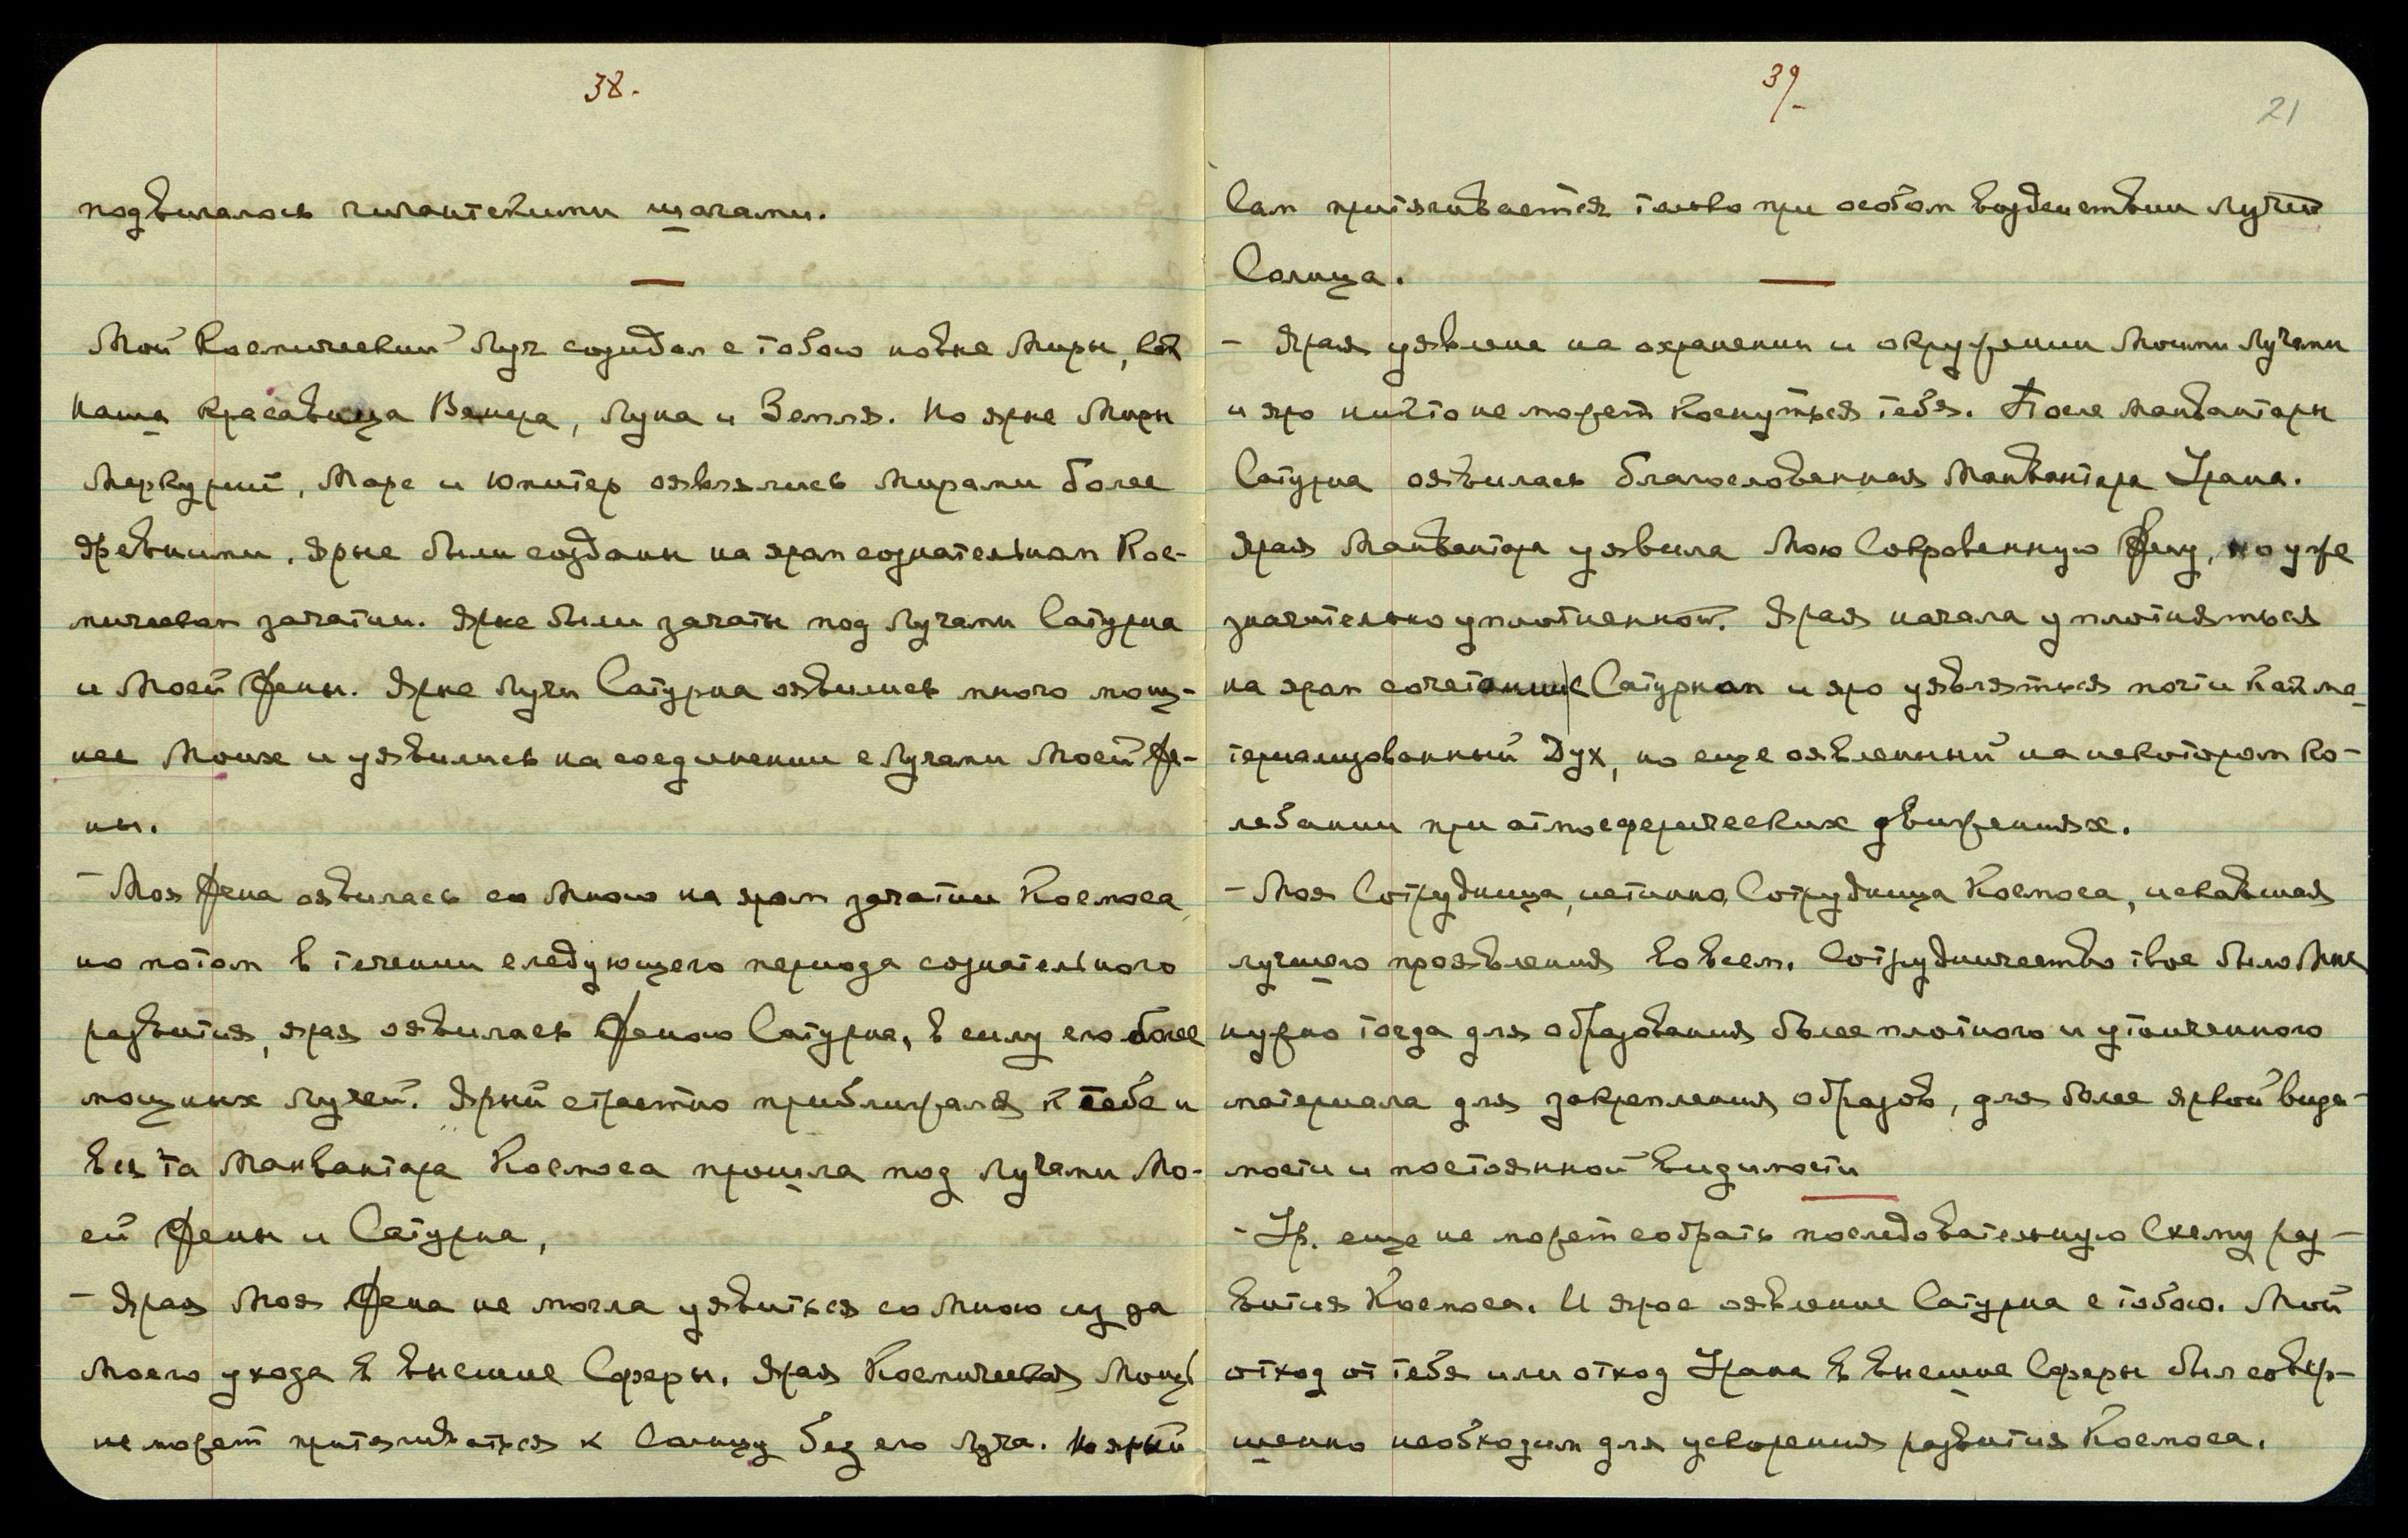 38.
подвигалось гигантскими шагами.
Мой Космический Луч созидал с тобою новые Миры, вот
наша красавица Венера, Луна и Земля. Но ярые Миры
Меркурий, Марс и Юпитер оявлялись Мирами более
древними. Ярые были созданы на яром сознательном Кос-
мическом зачатии. Ярые были зачаты под Лучами Сатурна
и Моей Жены. Ярые Лучи Сатурна оявились много мощ-
нее Моих и уявились на соединении с Лучами Моей Же-
ны.
- Моя Жена оявилась со Мною на яром зачатии Космоса,
но потом в течении следующего периода сознательного
развития, ярая оявилась Женою Сатурна, в силу его более
мощных Лучей. Ярый страстно приближался к тебе и
вся та Манвантара Космоса прошла под Лучами Мо-
ей Жены и Сатурна,
- Ярая Моя Жена не могла уявиться со Мною из за
Моего ухода в внешние Сферы. Ярая Космическая Мощь
не может притягиваться к Солнцу без его Луча. Но ярый
39.
21
Сам притягивается только при особом воздействии Лучей
Солнца.
- Ярая уявлена на охранении и окружении Моими Лучами
и яро ничто не может коснуться тебя. После Манвантары
Сатурна оявилась благословенная Манвантара Урана.
Ярая Манвантара уявила Мою Сокровенную Жену, но уже
значительно уплотненной. Ярая начала уплотняться
на яром сочетании с Сатурном и яро уявляться почти как ма-
териализованный Дух, но еще оявленный на некотором ко-
лебании при атмосферических движениях.
- Моя Сотрудница, истинно, Сотрудница Космоса, искавшая
лучшего проявления во всем. Сотрудничество твое было Мне
нужно тогда для образования более плотного и утонченного
материала для закрепления образов, для более яркой види-
мости и постоянной видимости
- Ур. еще не может собрать последовательную Схему раз-
вития Космоса. И ярое оявление Сатурна с тобою. Мой
отход от тебя или отход Урана в внешние Сферы был совер-
шенно необходим для ускорения развития Космоса.